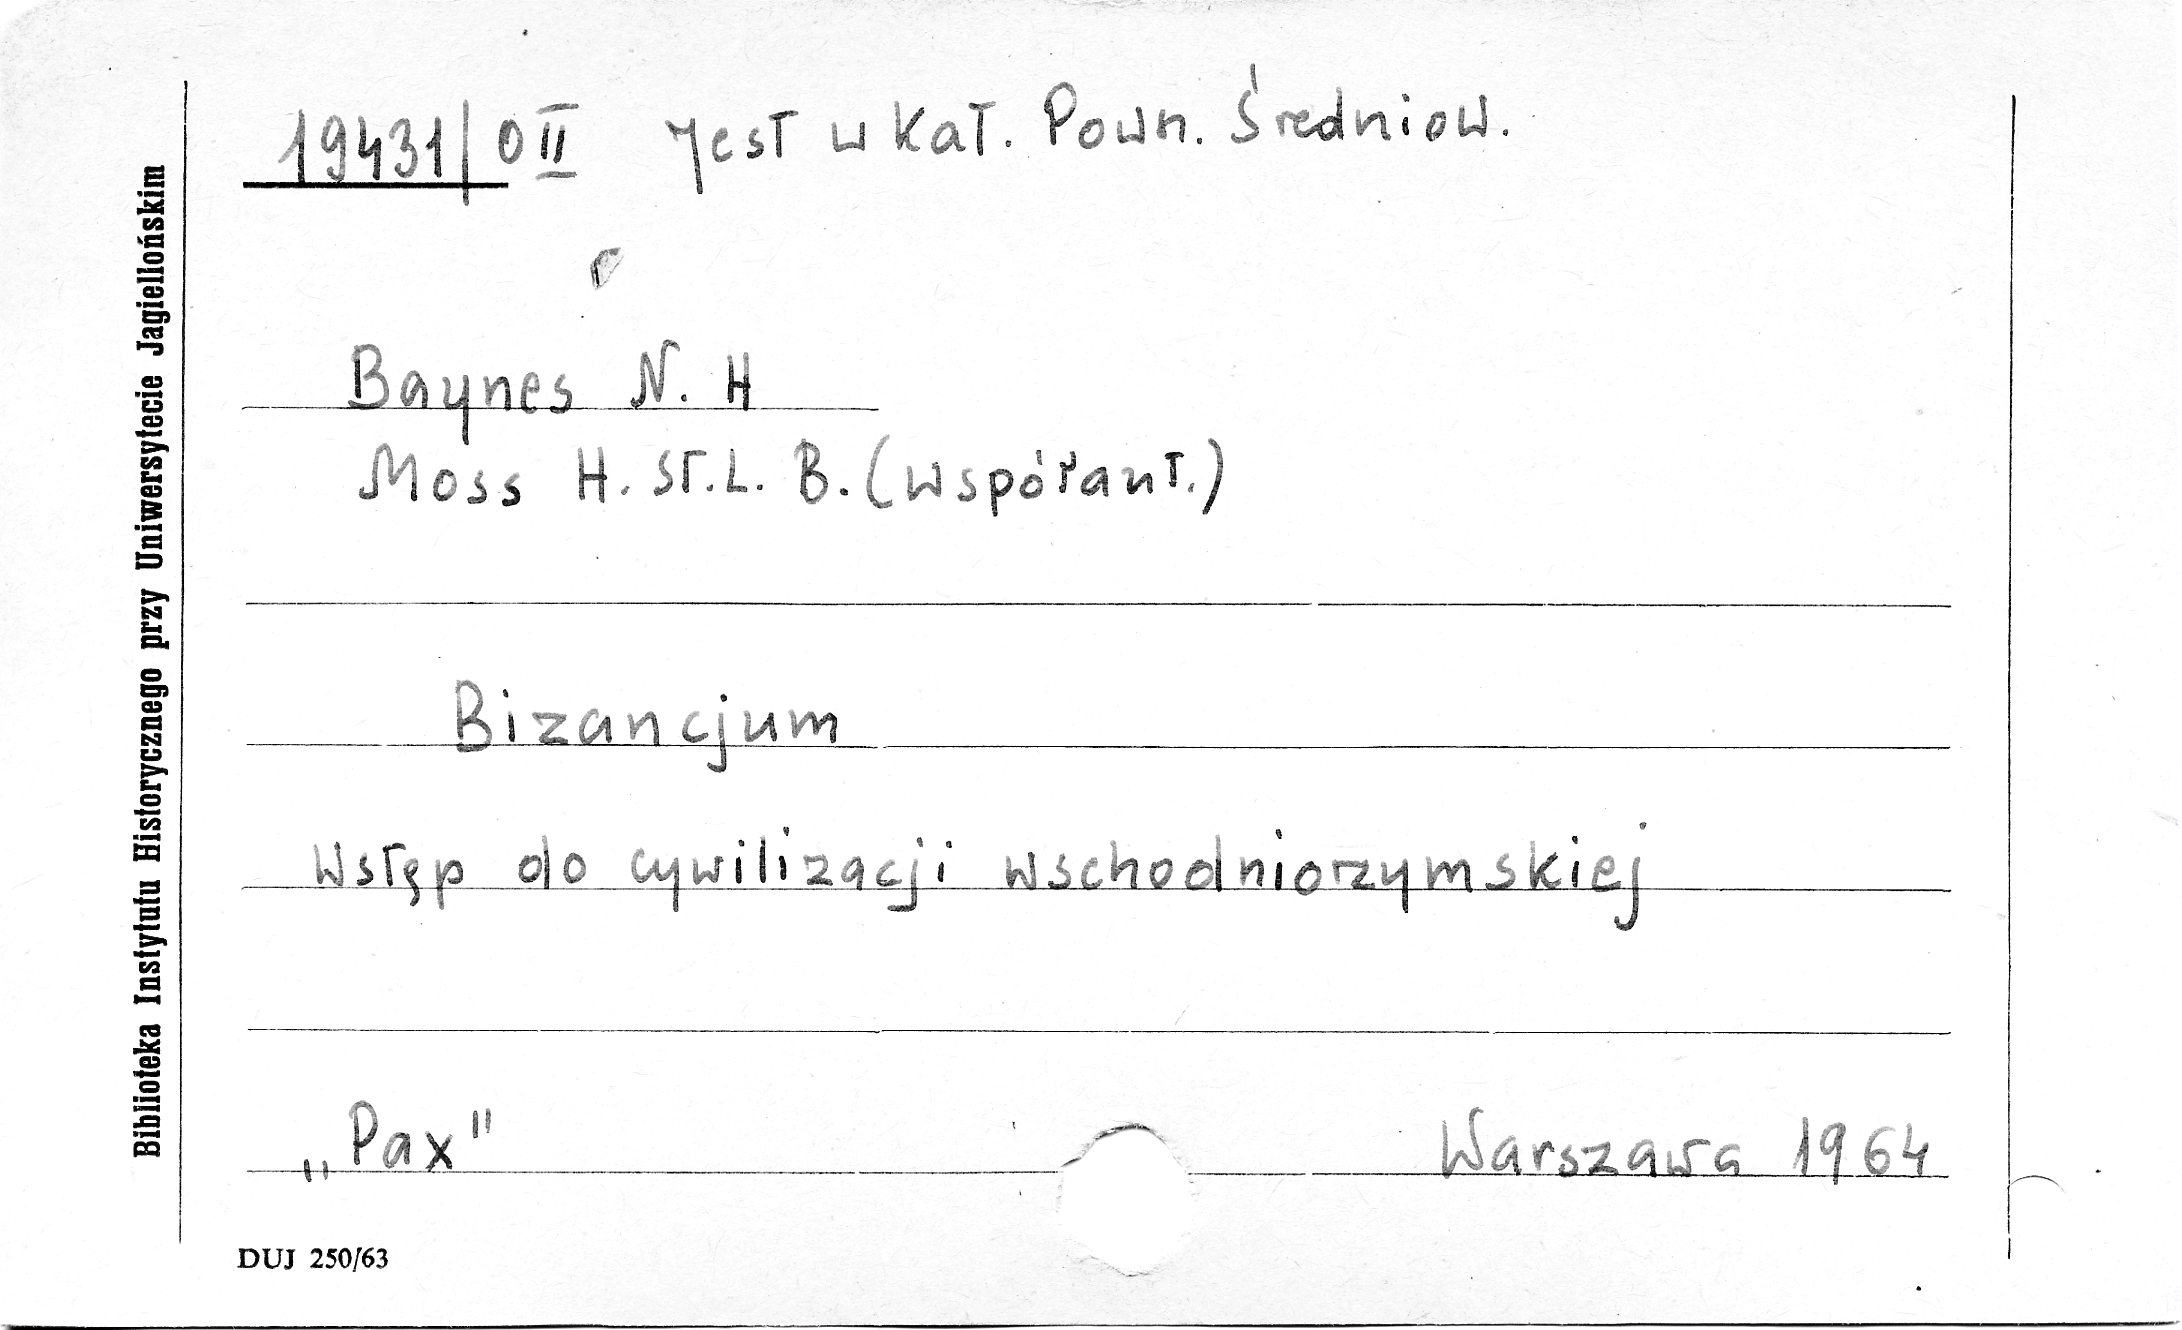 19431/0 II Jest w Kat. Pown. Średniow.
Baynes N. H
Moss H. St. L. B. (współaut.)
Bizancjum
Wstęp do cywilizacji wschodniorzymskiej
„Pax" Warszawa 1964
DUJ 250/63
Biblioteka Instytutu Historycznego przy Uniwersytecie Jagiellońskim